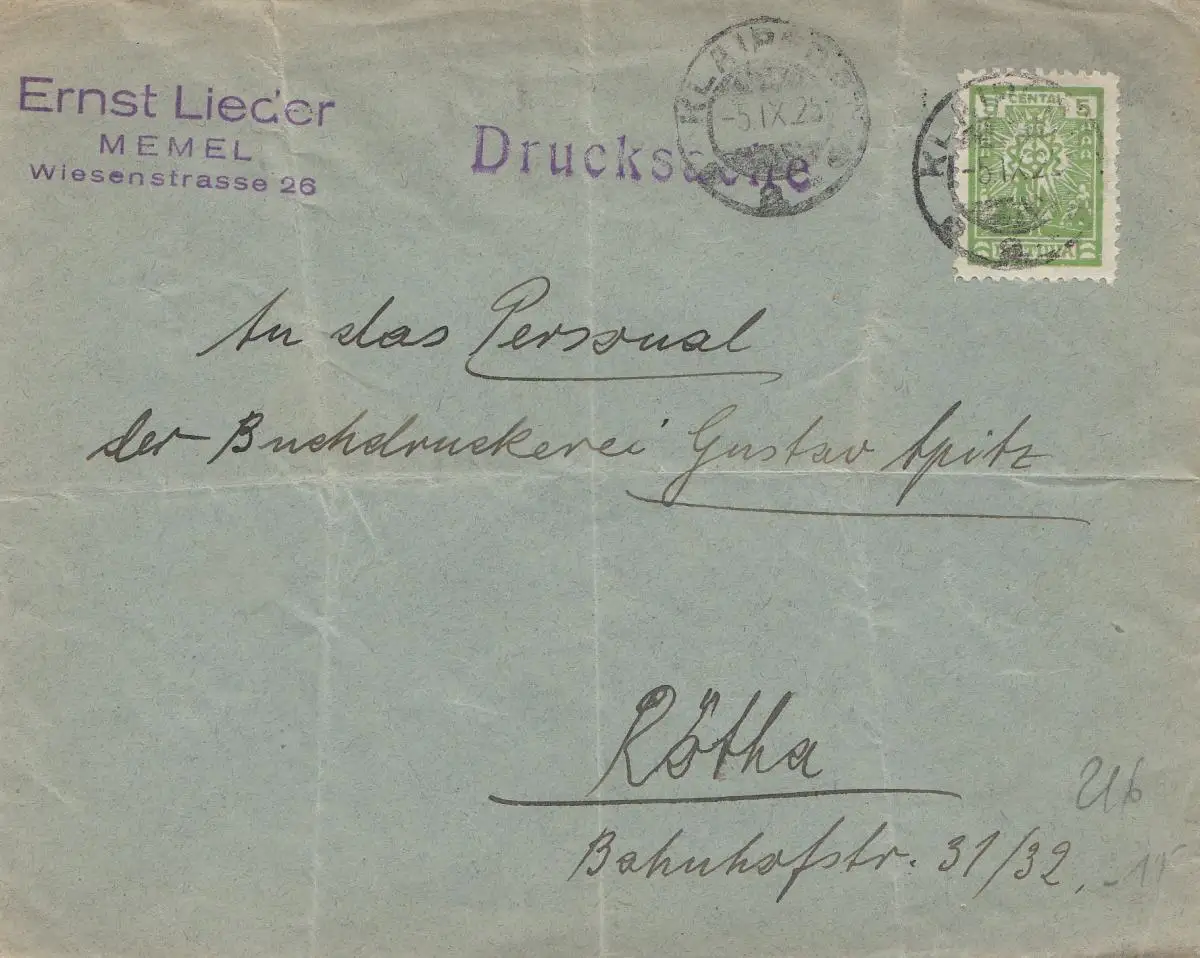 Ernst Lieder
MEMEL
Wiesenstrasse 26
Drucksache
-5.IX.25
5 CENTAI 5
LIETUVA
An das Personal
der Buchdruckerei Gustav Spitz
Rötha
Bahnhofstr. 31/32.